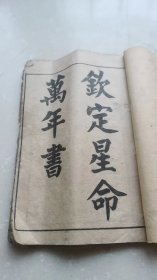 欽定星命
萬年書